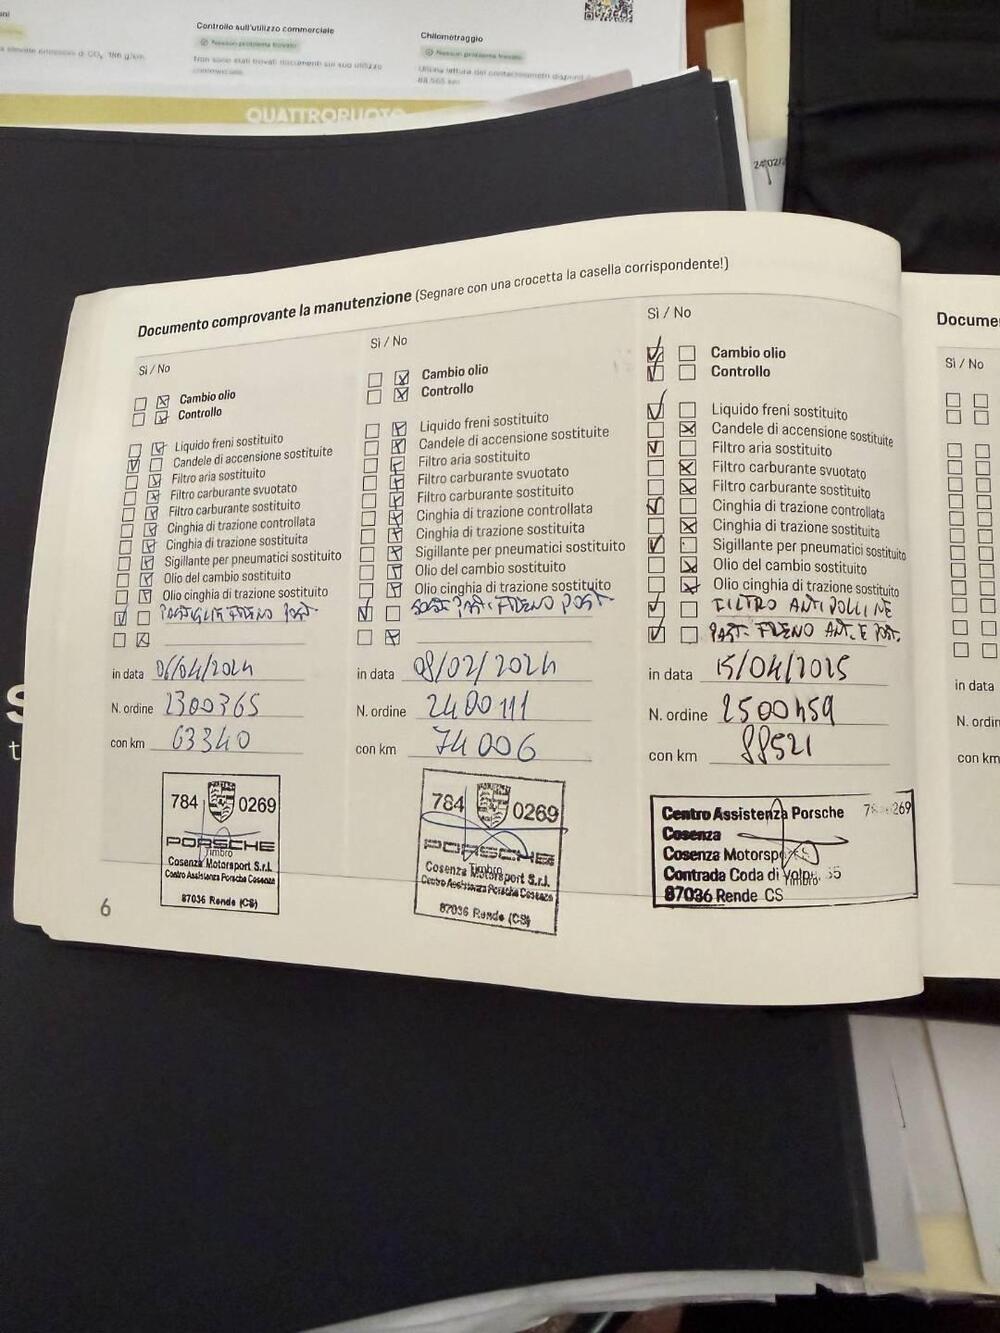 Controllo sull'utilizzo commerciale
Nessun problema trovato
Non sono stati trovati documenti sul suo utilizzo
commerciale.
Chilometraggio
Nessun problema trovato
QUATTRORUOTE
Documento comprovante la manutenzione (Segnare con una crocetta la casella corrispondente!)
Sì / No
Cambio olio
Controllo
Liquido freni sostituito
Candele di accensione sostituite
Filtro aria sostituito
Filtro carburante svuotato
Filtro carburante sostituito
Cinghia di trazione controllata
Cinghia di trazione sostituita
Sigillante per pneumatici sostituito
Olio del cambio sostituito
Olio cinghia di trazione sostituito
PASTIGLIE FRENO POST.
in data 06/04/2024
N. ordine 2300365
con km 63340
784 0269
PORSCHE
Timbro
Cosenza Motorsport S.r.l.
Centro Assistenza Porsche Cosenza
87036 Rende (CS)
6
Sì / No
Cambio olio
Controllo
Liquido freni sostituito
Candele di accensione sostituite
Filtro aria sostituito
Filtro carburante svuotato
Filtro carburante sostituito
Cinghia di trazione controllata
Cinghia di trazione sostituita
Sigillante per pneumatici sostituito
Olio del cambio sostituito
Olio cinghia di trazione sostituito
SOST. PAST. FRENO POST
in data 08/02/2024
N. ordine 2400111
con km 74006
784 0269
PORSCHE
Timbro
Cosenza Motorsport S.r.l.
Centro Assistenza Porsche Cosenza
87036 Rende (CS)
Sì / No
Cambio olio
Controllo
Liquido freni sostituito
Candele di accensione sostituite
Filtro aria sostituito
Filtro carburante svuotato
Filtro carburante sostituito
Cinghia di trazione controllata
Cinghia di trazione sostituita
Sigillante per pneumatici sostituito
Olio del cambio sostituito
Olio cinghia di trazione sostituito
FILTRO ANTIPOLLINE
PAST. FRENO ANT. E POST.
in data 15/04/2025
N. ordine 2500459
con km 88521
Centro Assistenza Porsche
Cosenza
Cosenza Motorsport
Contrada Coda di Volpe
Timbro
87036 Rende CS
Docume
Sì / No
in data
N. ordin
con km